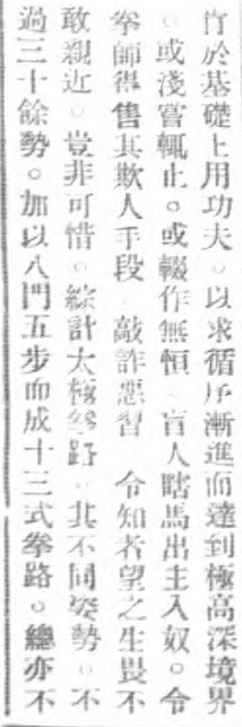 肯於基礎上用功夫。以求循序漸進而達到極高深境界
。或淺嘗輒止。或輟作無恒。盲人瞎馬出主入奴。令
拳師得售其欺人手段。敲詐惡習。令知者望之生畏不
敢親近。豈非可惜。綜計太極拳路。其不同姿勢。不
過三十餘勢。加以八門五步而成十三式拳路。總亦不